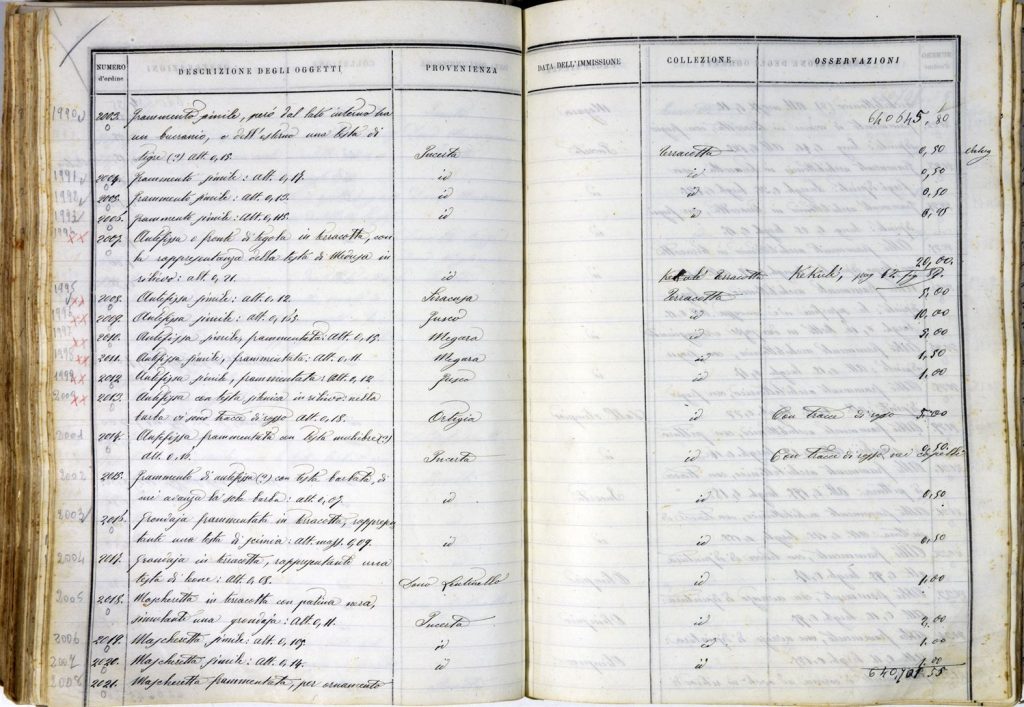 NUMERO d'ordine DESCRIZIONE DEGLI OGGETTI PROVENIENZA DATA DELL'IMMISSIONE COLLEZIONE OSSERVAZIONI
640645.80
1990 2003. Frammento simile, però dal lato interno ha
un bucranio, e dell'esterno una testa di
tigre (?) Alt. 0,15. Incerta Terracotta 0,50
1991 2004. Frammento simile: alt. 0,17. id id 0,50
1992 2005. Frammento simile: Alt. 0,13. id id 0,50
1993 2006. Frammento simile: Alt. 0,115. id id
1994 2007. Antefissa o fronte di tegola in terracotta, con
la rappresentanza della testa di Medusa in
rilievo: alt. 0,21. id Kekulé Terracotta Kekulé, pag 20,00
1995 2008. Antefissa simile: alt. 0,12. Siracusa Terracotta 5,00
2009. Antefissa simile: alt. 0,165. Fusco id 10,00
2010. Antefissa simile, frammentata: Alt. 0,15. Megara id
2011. Antefissa simile, frammentata: Alt. 0,11. Megara id 1,50
1999 2012. Antefissa simile, frammentata: Alt. 0,12 Fusco id 1,00
2000 2013. Antefissa con testa scenica in rilievo: nella
barba vi sono tracce di rosso Alt. 0,18. Ortigia id Con tracce di rosso 5.00
2001 2014. Antefissa frammentata con testa muliebre (?)
Alt. 0,15. Incerta id Con tracce di rosso nei capelli 0,50.
2002 2015. Frammento di antefissa (?) con testa barbata, di
cui avanza la sola barba: alt. 0,07. id id 0,50
2003 2016. Grondaja frammentata in terracotta, rappresen
tante una testa di scimia: Alt. mass. 0,09. id id 0,50
2004 2017. Grondaja in terracotta, rappresentante una
testa di leone: alt. 0,08. id 1.00
2005 2018. Mascheretta in terracotta con patina nera,
simulante una grondaja: Alt. 0,11. Incerta id 2,00
2006 2019. Mascheretta simile: alt. 0,105. id id 1.00
2007 2020. Mascheretta simile: alt. 0,14. id id 1.00
2008 2021. Mascheretta frammentata, per ornamento